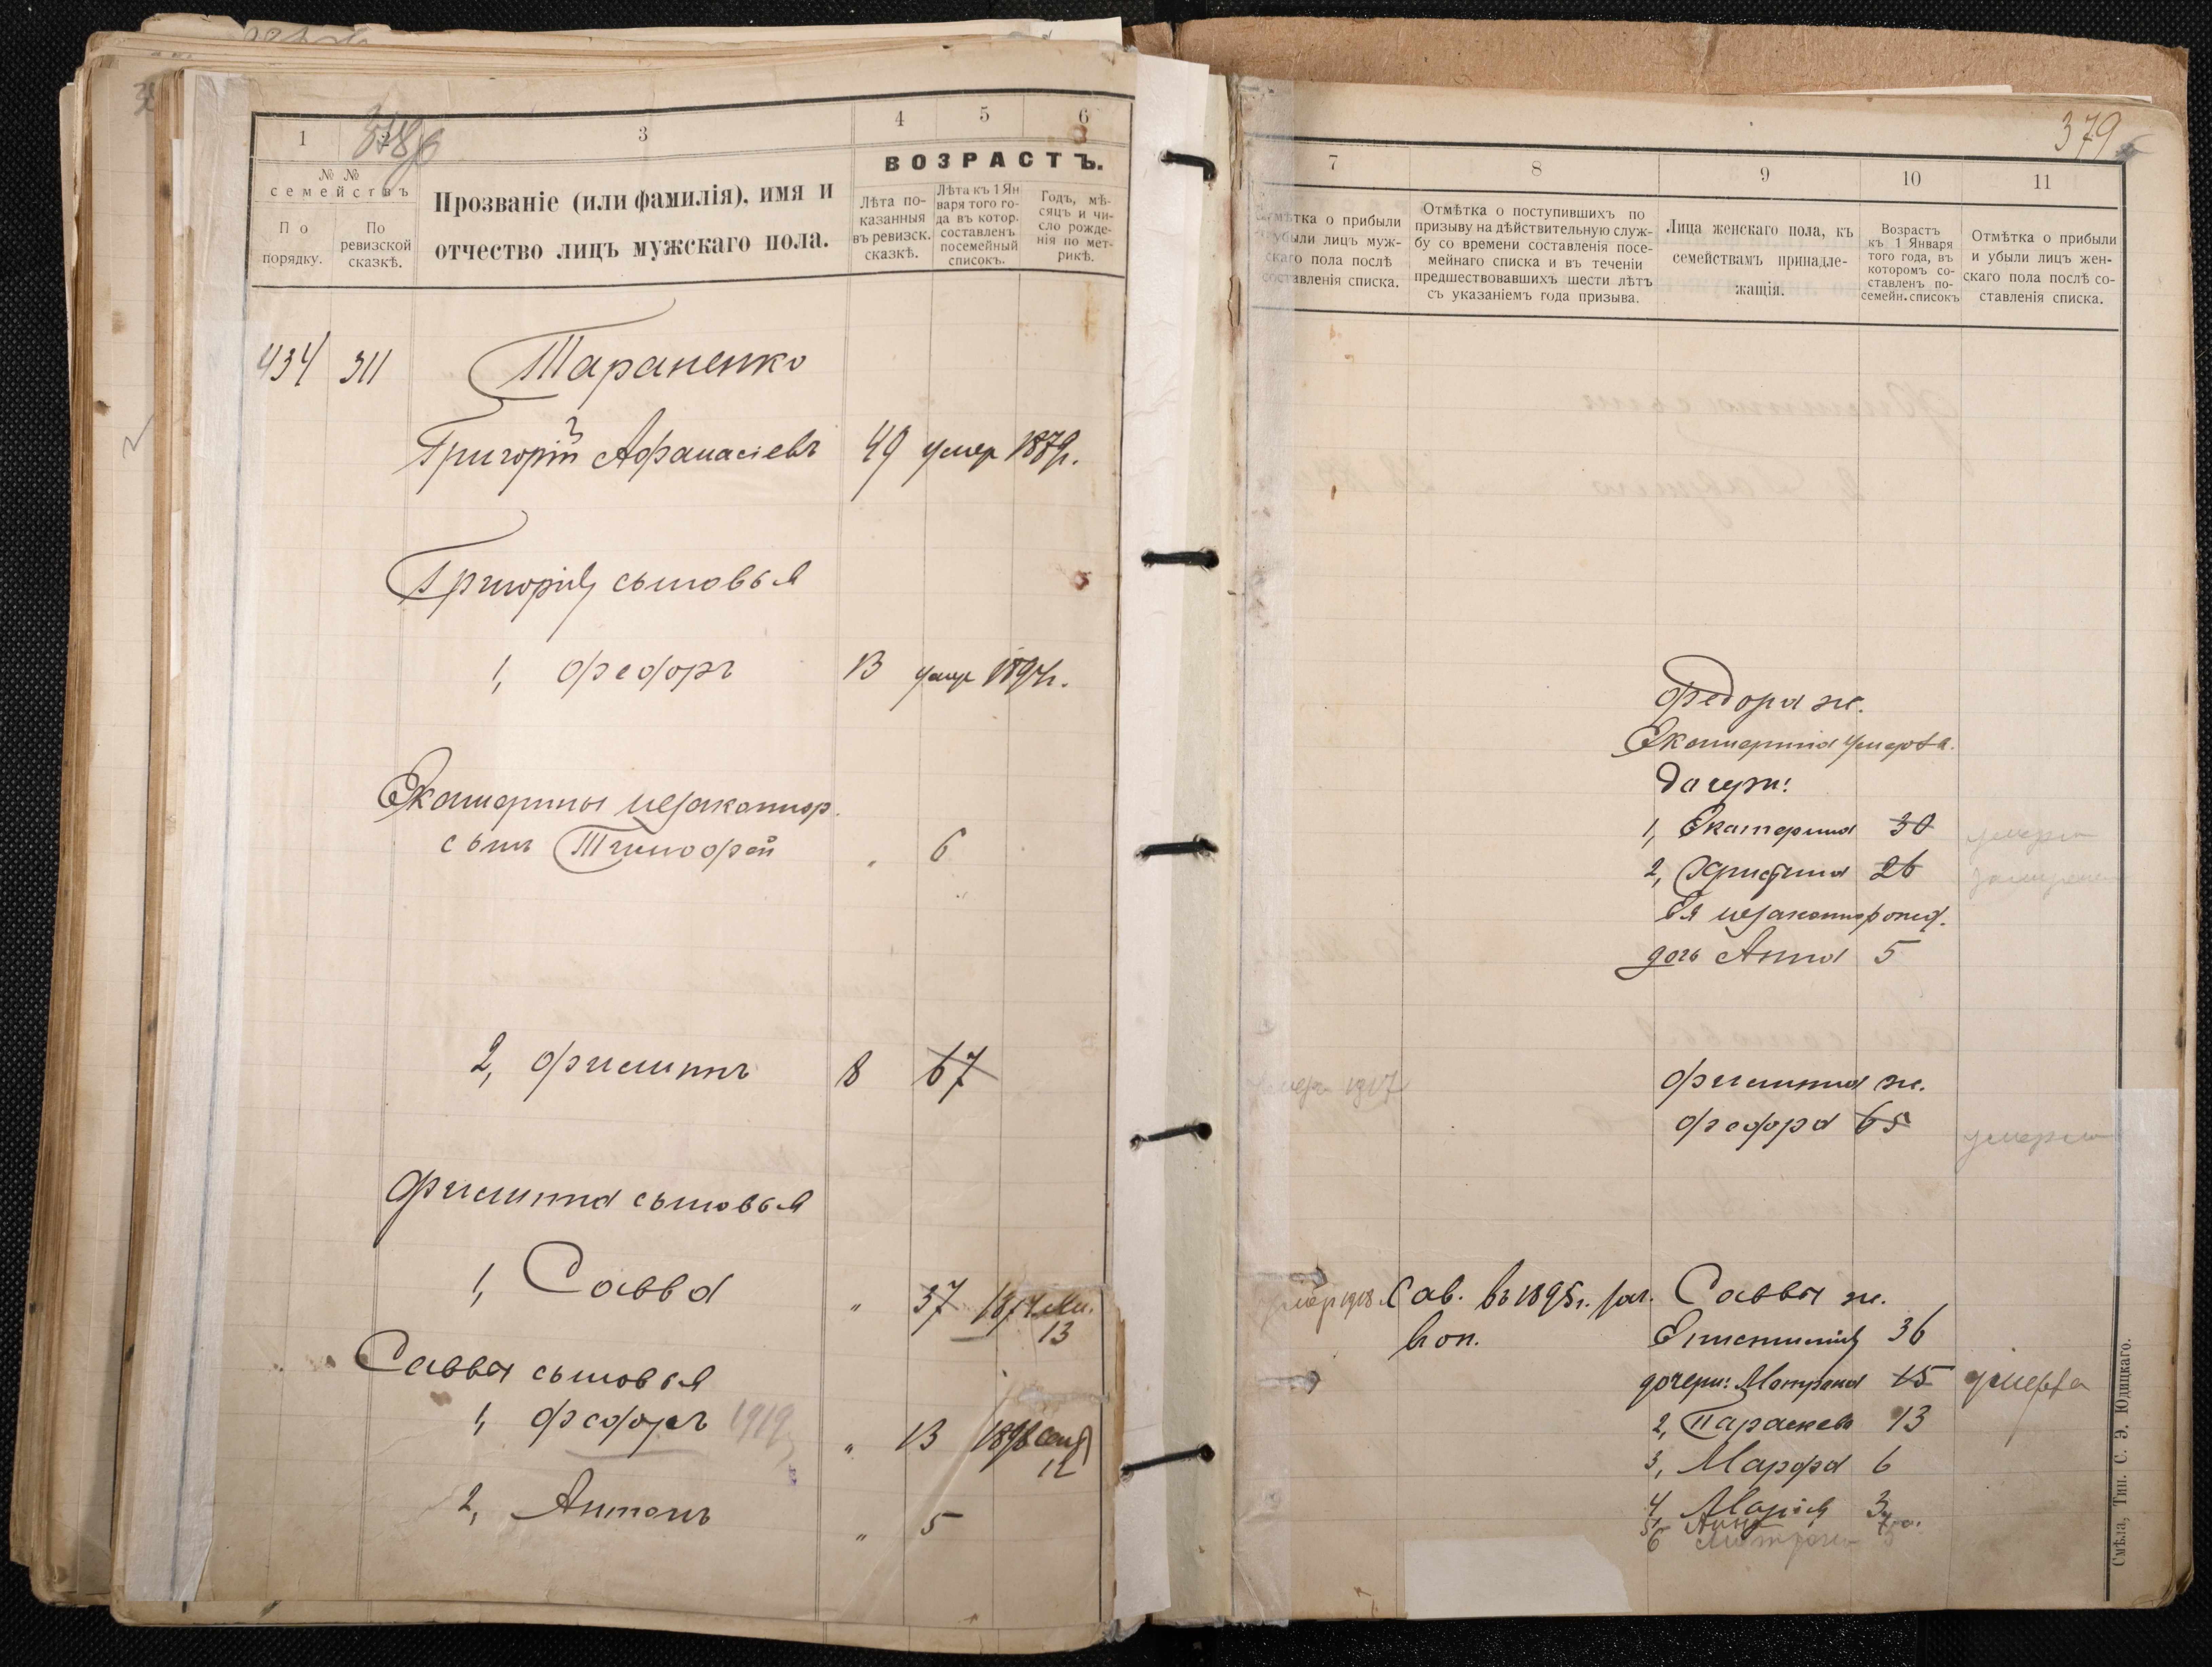 1
3
4
5
6
ВОЗРАСТЪ.
№ №
семействъ
По порядку.
По ревизской сказкѣ.
Прозваніе (или фамилія), имя и
отчество лицъ мужскаго пола.
Лѣта по-
казанныя
въ ревизск.
сказкѣ.
Лѣта къ 1 Ян
варя того го-
да въ котор.
составленъ
посемейный
списокъ.
Годъ, мѣ-
сяцъ и чи-
сло рожде-
нія по мет-
рикѣ.
434 311 Тараненко
Григорій Афанасіевъ 49 умер 1879г.
Григорія сыновья
1, Федоръ 13 умер 1897г.
Екатерины незаконнор.
сынъ Тимофей " 6
2, Филиппъ 8 67
Филиппа сыновья
1, Савва " 37 1874
13
Саввы сыновья
1, Федоръ 1919 " 13 1898 Сент
12
2, Антонъ " 5
379
7
8
9
10
11
мѣтка о прибыли
убыли лицъ муж-
скаго пола послѣ
составленія списка.
Отмѣтка о поступившихъ по
призыву на дѣйствительную служ-
бу со времени составленія посе-
мейнаго списка и въ теченіи
предшествовавшихъ шести лѣтъ
съ указаніемъ года призыва.
Лица женскаго пола, къ
семействамъ принадле-
жащія.
Возрастъ
къ 1 Января
того года, въ
которомъ со-
ставленъ по-
семейн. списокъ
Отмѣтка о прибыли
и убыли лицъ жен-
скаго пола послѣ со-
ставленія списка.
Федора ж.
Екатерина умерла.
Дочери:
1, Екатерина 30 умерла
2, Христина 26 замужем
Ея незаконнорожд.
дочь Анна 5
1917 Филиппа ж.
Федора 65 умерла
1918 Сав. въ 1895г. рат. Саввы ж.
опол. Епистимія 36
дочери: Матрона 15 умерла
2, Параскева 13
3, Марфа 6
4, Марія 3
5, Анна
6 Матрона
Смѣла, Тип. С. Э. Юдицкаго.